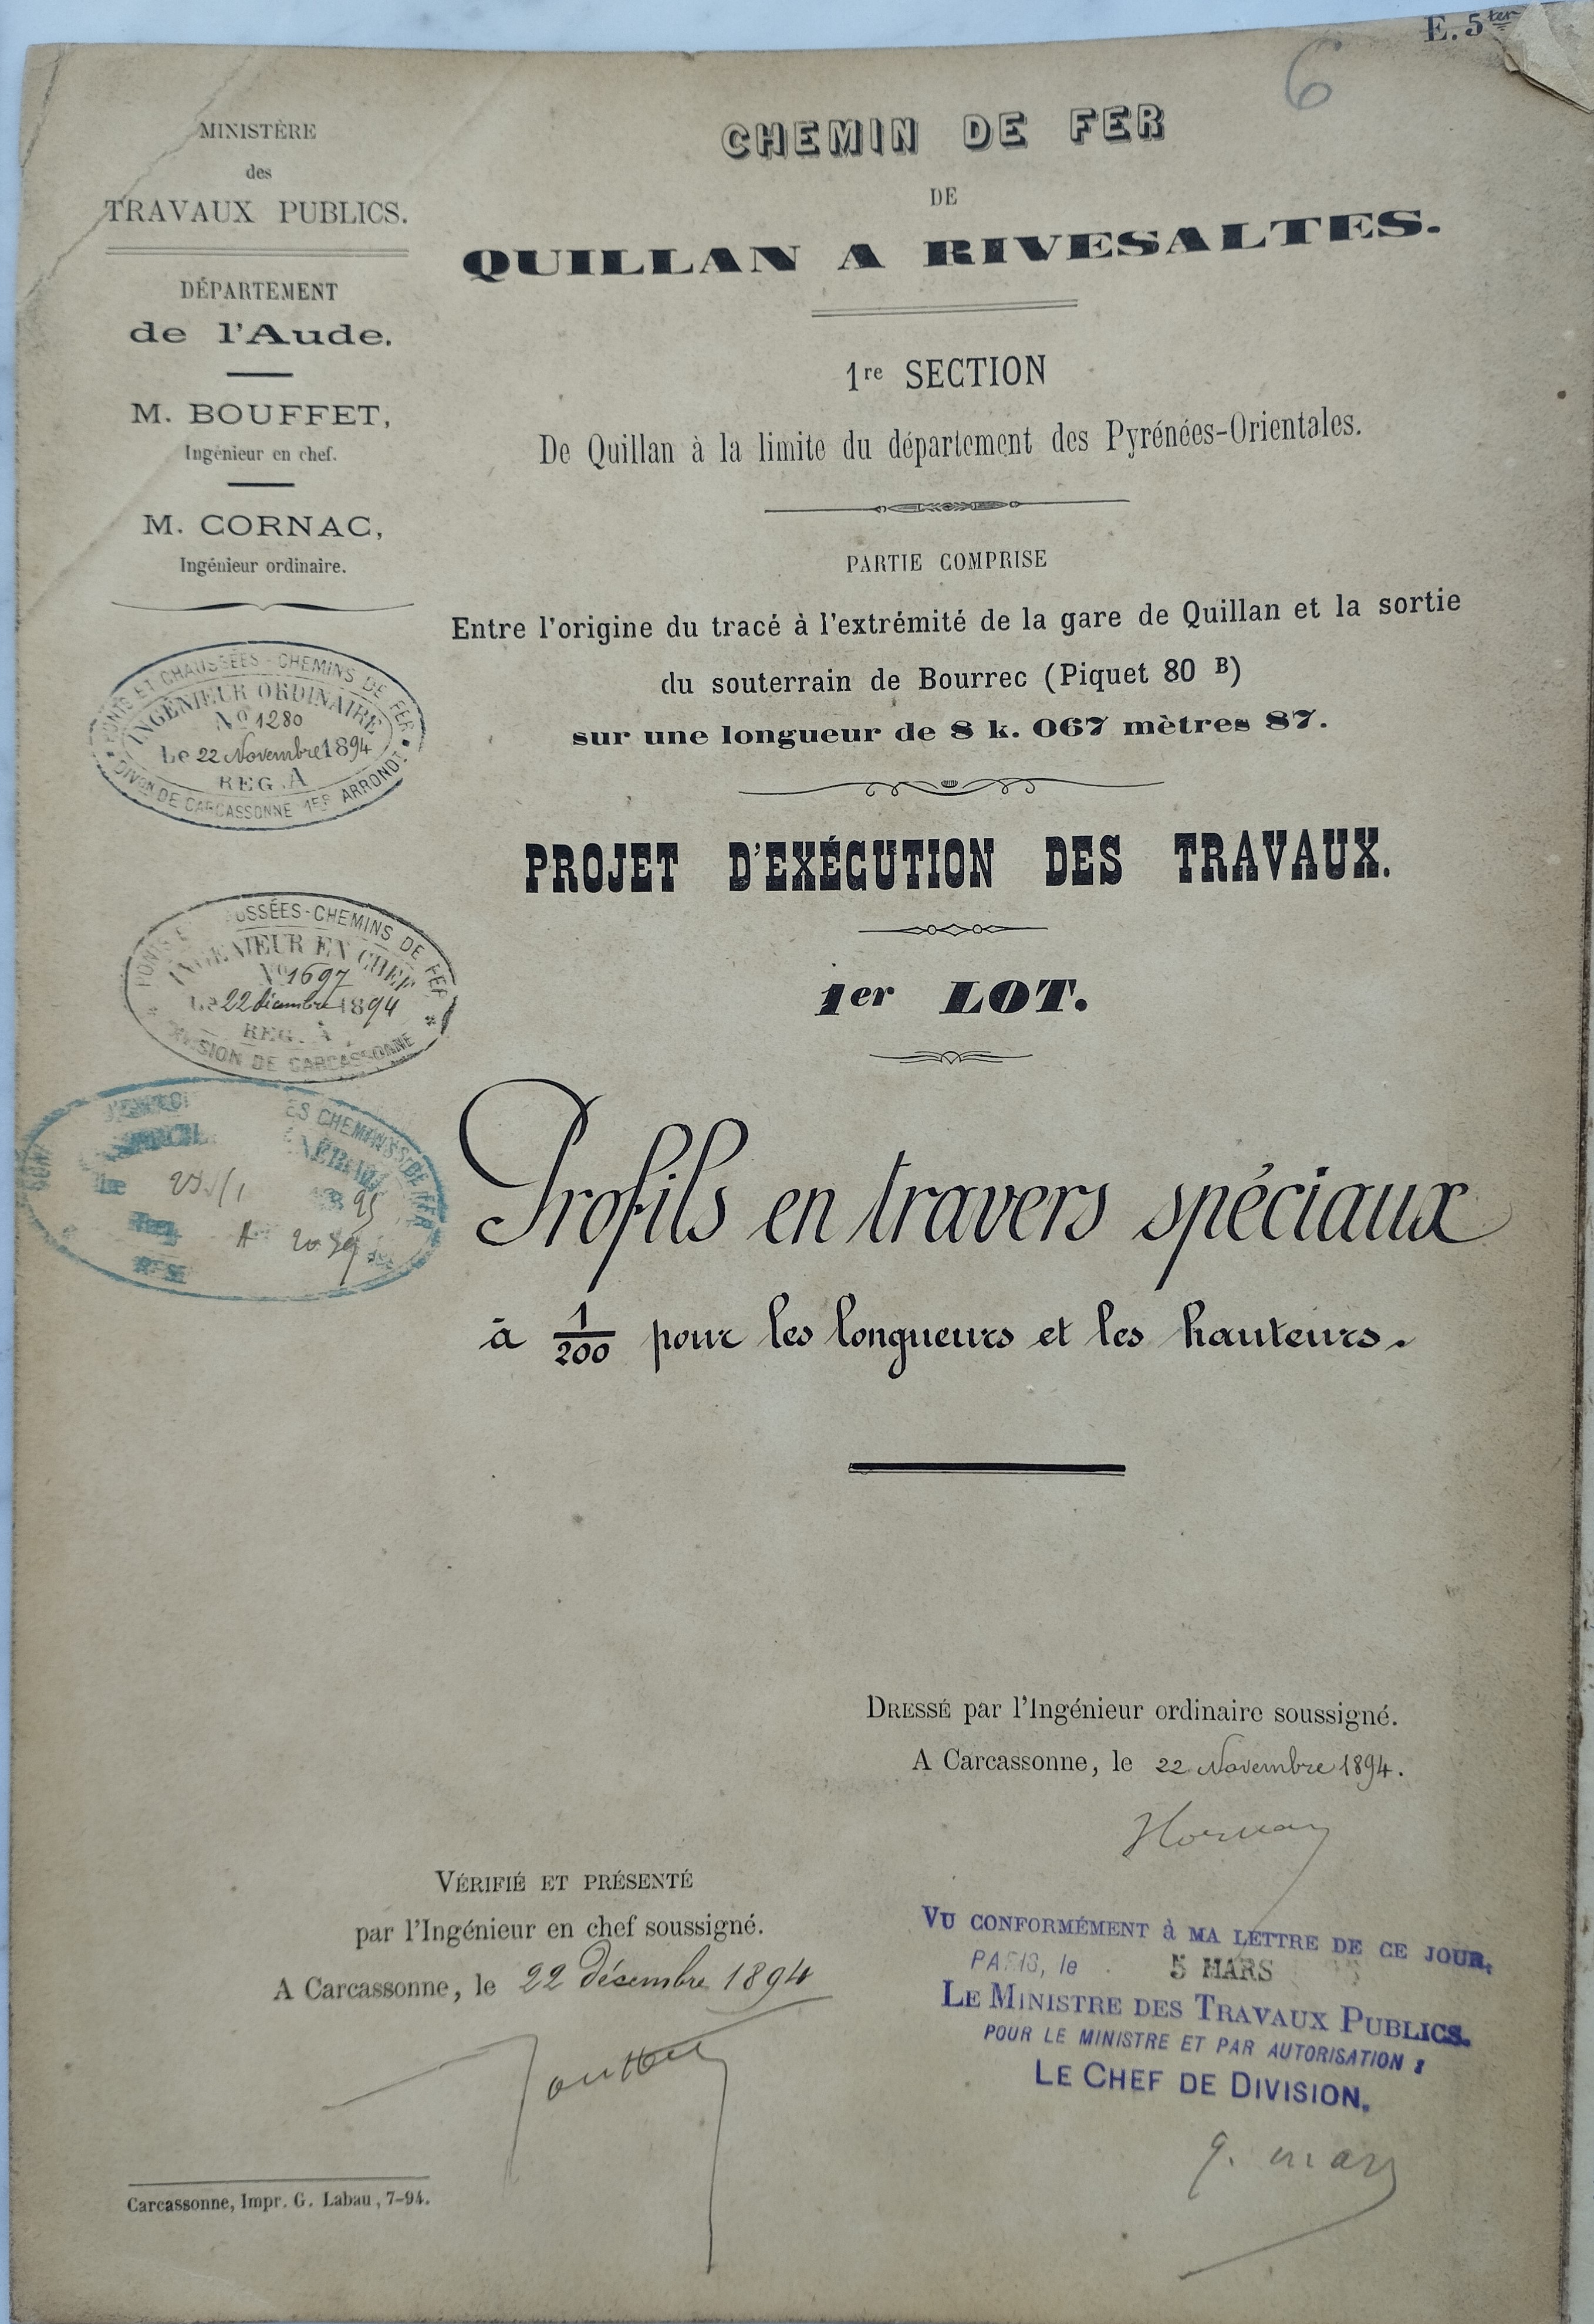 E. 5 ter
6
MINISTÈRE
des
TRAVAUX PUBLICS.
DÉPARTEMENT
de l'Aude.
M. BOUFFET,
Ingénieur en chef.
M. CORNAC,
Ingénieur ordinaire.
PONTS ET CHAUSSÉES - CHEMINS DE FER
INGÉNIEUR ORDINAIRE
No 1280
Le 22 Novembre 1894
REG. A
DIVon DE CARCASSONNE 1ER ARRONDT
USSÉES-CHEMINS DE FER
INGÉNIEUR EN CHEF
No 1697
Le 22 décembre 1894
REG. A
DIVISION DE CARCASSONNE
ES CHEMINS DE FER
CHEMIN DE FER
DE
QUILLAN A RIVESALTES.
1re SECTION
De Quillan à la limite du département des Pyrénées-Orientales.
PARTIE COMPRISE
Entre l'origine du tracé à l'extrémité de la gare de Quillan et la sortie
du souterrain de Bourrec (Piquet 80 B)
sur une longueur de 8 k. 067 mètres 87.
PROJET D'EXÉCUTION DES TRAVAUX.
1er LOT.
Profils en travers spéciaux
à 1/200 pour les longueurs et les hauteurs.
DRESSÉ par l'Ingénieur ordinaire soussigné.
A Carcassonne, le 22 Novembre 1894.
VÉRIFIÉ ET PRÉSENTÉ
par l'Ingénieur en chef soussigné.
A Carcassonne, le 22 désembre 1894
Bouffet
VU CONFORMÉMENT à MA LETTRE DE CE JOUR.
PARIS, le 5 MARS
LE MINISTRE DES TRAVAUX PUBLICS.
POUR LE MINISTRE ET PAR AUTORISATION :
LE CHEF DE DIVISION.
Carcassonne, Impr. G. Labau, 7-94.